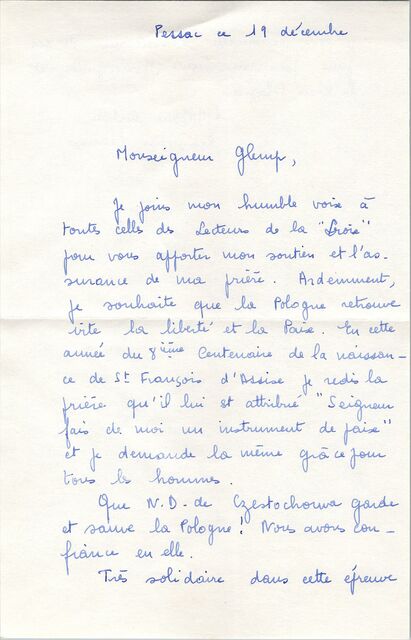 Pessac ce 19 décembre
Monseigneur Glemp,
Je joins mon humble voix à
toutes celles des Lecteurs de la "Croix"
pour vous apporter mon soutien et l'as-
surance de ma prière. Ardemment,
je souhaite que la Pologne retrouve
vite la liberté et la Paix. En cette
année du 8ième Centenaire de la naissan-
ce de St François d'Assise je redis la
prière qu'il lui est attribué "Seigneur
fais de moi un instrument de paix"
et je demande la même grâce pour
tous les hommes.
Que N.D. de Czestochowa garde
et sauve la Pologne! Nous avons con-
fiance en elle.
Très solidaire dans cette épreuve